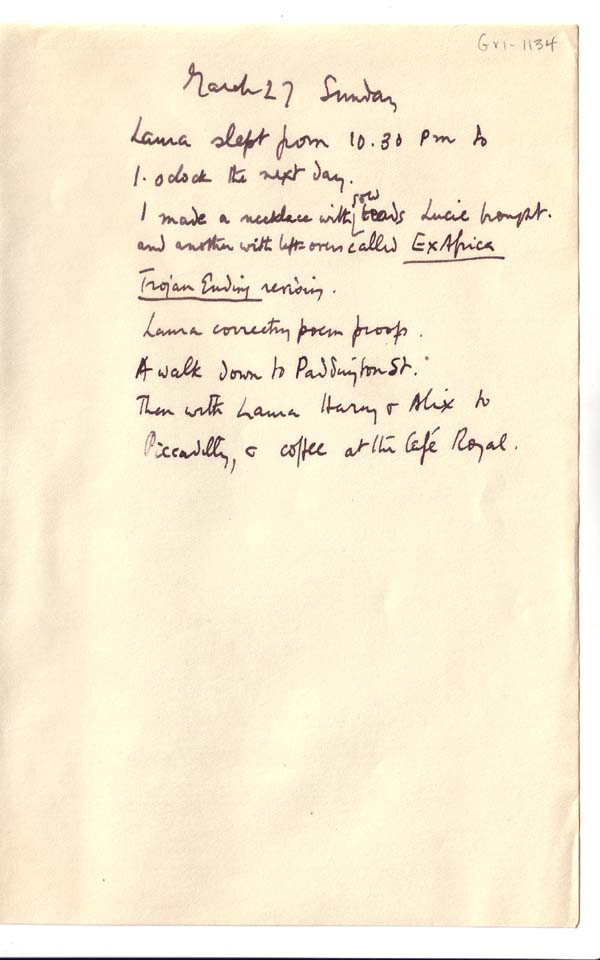 GV1-1134
March 27 Sunday
Laura slept from 10.30 pm to
1. oclock the next day.
gold
I made a necklace with beads Lucie brought.
and another with left-overs called Ex Africa
Trojan Ending revising.
Laura correcting poem proofs.
A walk down to Paddington St.
Then with Laura Harry & Alix to
Piccadilly, & coffee at the Café Royal.